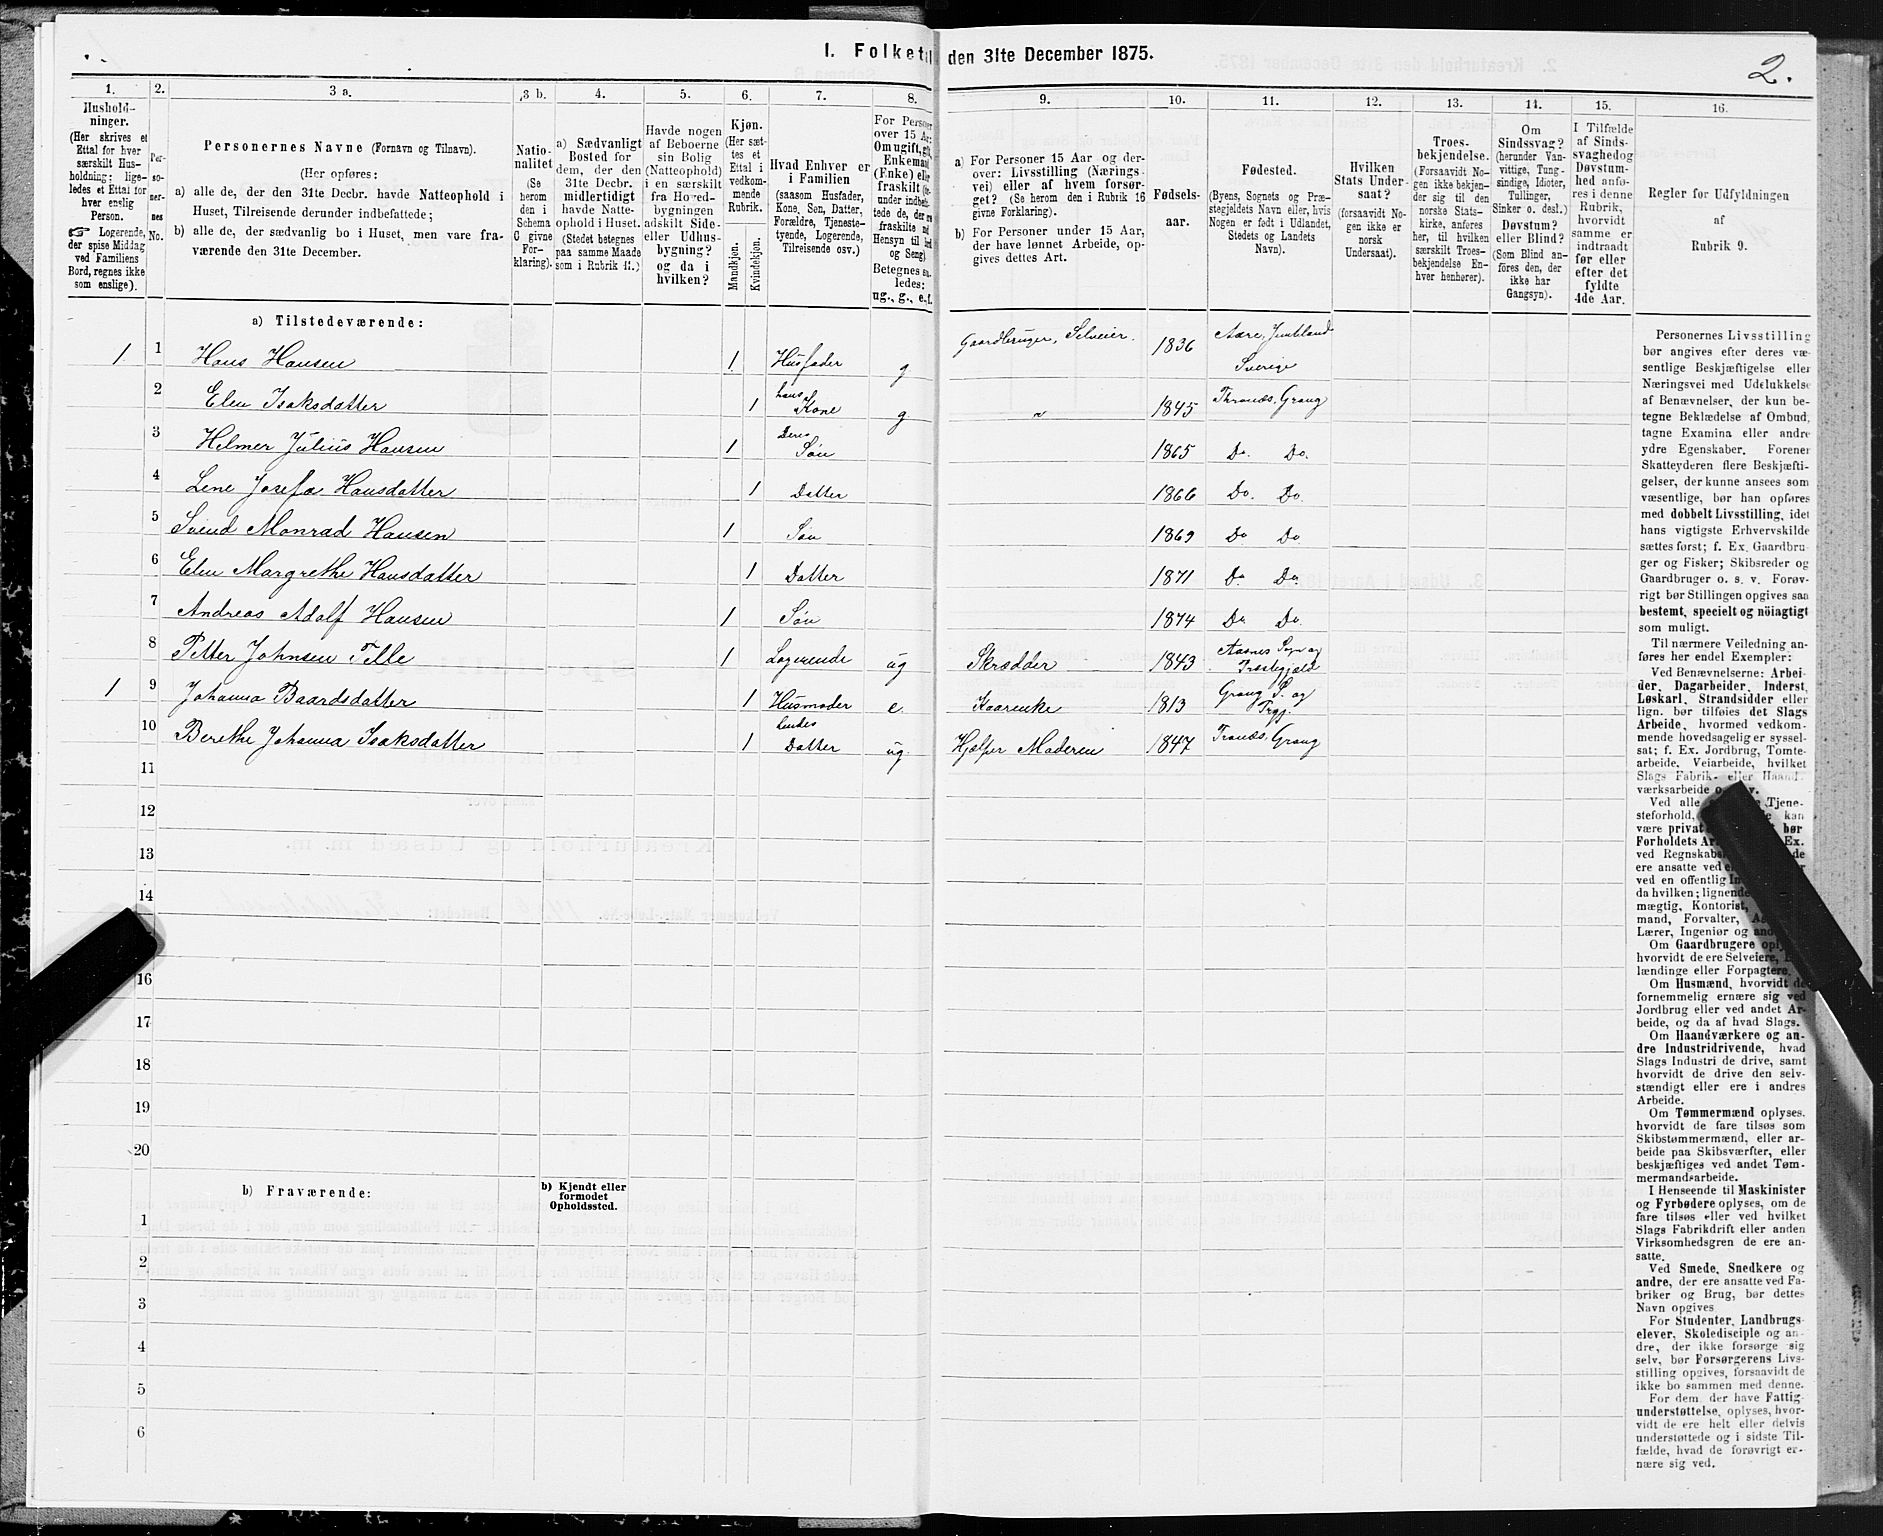 I. Folket
den 31te December 1875.
2.
1.
Hushold-
ninger.
(Her skrives et
Ettal for hver
særskilt Hus-
holdning; lige-
ledes et Ettal for
hver enslig
Person.
☞ Logerende,
der spise Middag
ved Familiens
Bord, regnes ikke
som enslige).
2.
Per-
so-
ner-
nes
No.
3 a.
Personernes Navne (Fornavn og Tilnavn).
(Her opføres:
a) alle de, der den 31te Decbr. havde Natteophold i
Huset, Tilreisende derunder indbefattede;
b) alle de, der sædvanlig bo i Huset, men vare fra-
værende den 31te December.
3 b.
Natio-
nalitet
(Se
herom
den i
Schema
C givne
For-
klaring).
4.
a) Sædvanligt
Bosted for
dem, der den
31te Decbr.
midlertidigt
havde Natte-
ophold i Huset.
(Stedet betegnes
paa samme Maade
som i Rubrik 11.)
5.
Havde nogen
af Beboerne
sin Bolig
(Natteophold)
i en særskilt
fra Hoved-
bygningen
adskilt Side-
eller Udhus-
bygning?
og da i
hvilken?
6.
Kjøn.
(Her sæt-
tes et
Ettal i
vedkom-
mende
Rubrik.
Mandkjøn.
Kvindekjøn.
7.
Hvad Enhver er
i Familien
(saasom Husfader,
Kone, Søn, Datter,
Forældre, Tjeneste-
tyende, Logerende,
Tilreisende osv.)
8.
For Person
over 15 Aa
Om ugift, gift,
Enkemand
(Enke) eller
fraskilt
Betegnes
ledes:
ug., g., e., f.
9.
a) For Personer 15 Aar og der-
over: Livsstilling (Nærings-
vei) eller af hvem forsør-
get? (Se herom den i Rubrik 16
givne Forklaring).
b) For Personer under 15 Aar,
der have lønnet Arbeide, op-
gives dettes Art.
10.
Fødsels-
aar.
11.
Fødested.
(Byens, Sognets og Præ-
stegjeldets Navn eller, hvis
Nogen er født i Udlandet,
Stedets og Landets
Navn).
12.
Hvilken
Stats Under-
saat?
(forsaavidt No-
gen ikke er
norsk
Undersaat).
13.
Troes-
bekjendelse.
(Forsaavidt No-
gen ikke bekjen-
der sig til den
norske Stats-
kirke, anføres
her, til hvilken
særskilt Troes-
bekjendelse En-
hver henhører).
14.
Om
Sindssvag?
(herunder Van-
vittige, Tung-
sindige, Idioter,
Tullinger,
Sinker o. desl.)
Døvstum?
eller Blind?
(Som Blind an-
føres den, der
ikke har
Gangsyn).
15.
I Tilfælde
af Sinds-
svaghedog
Døvstum-
hed anfø-
res i denne
Rubrik,
hvorvidt
samme er
indtraadt
før eller
efter det
fyldte
4de Aar.
16.
Regler for Udfyldningen
af
Rubrik 9.
a) Tilstedeværende:
1 1 Hans Hansen 1 Husfader g Gaardbruger, Selveier. 1836 Aare, Jemtland
Sverige
2 Elen Isaksdatter 1 hans Kone g 1845 Thranæs, Grong
3 Helmer Julius Hansen 1 Deres Søn 1865 Do. Do.
4 Lene Josefa Hansdatter 1 Datter 1866 Do. Do
5 Svend Monrad Hansen 1 Søn 1869 Do Do
6 Elen Margrethe Hansdatter 1 Datter 1871 Do Do
7 Andreas Adolf Hansen 1 Søn 1874 Do Do.
8 Petter Johnsen Felle 1 Logerende ug Skrædder 1843 Aasnes Sogn og
Præstegjæld
1 9 Johanna Baardsdatter 1 Husmoder e. Kaarenke 1813 Grong S. og
Prgj.
10 Berethe Johanna Isaksdatter 1 hendes Datter ug. Hjælper Moderen 1847 Tranæs, Grong
11
12
13
14
16
17
18
19
20
b) Fraværende:
b) Kjendt eller
formodet
Opholdssted.
1
2
3
4
5
6
Personernes Livsstilling
bør angives efter deres væ-
sentlige Beskjæftigelse eller
Næringsvei med Udelukkelse
af Benævnelser, der kun be-
tegne Beklædelse af Ombud,
tagne Examina eller andre
ydre Egenskaber. Forener
Skatteyderen flere Beskjæfti-
gelser, der kunne ansees som
væsentlige, bør han opføres
med dobbelt Livsstilling, idet
hans vigtigste Erhvervskilde
sættes først; f. Ex. Gaardbru-
ger og Fisker; Skibsreder og
Gaardbruger o. s. v. Forøv-
rigt bør Stillingen opgives saa
bestemt, specielt og nöiagtigt
som muligt.
Til nærmere Veiledning an-
føres her endel Exempler:
Ved Benævnelserne: Arbei-
der, Dagarbeider, Inderst,
Løskarl, Strandsidder eller
lign. bør tilføies det Slags
Arbeide, hvormed vedkom-
mende hovedsagelig er syssel-
sat; f. Ex. Jordbrug, Tomte-
arbeide, Veiarbeide, hvilket
Slags Fabrik- eller Haand-
værksarbeide o. s. v.
Ved alle Tjene-
steforhold, kan
være privat bør
Forholdets Ex.
ved Regnskabs
ere ansatte ved
ved en offentlig
da hvilken; lignende
mægtig, Kontorist,
mand, Forvalter,
Lærer, Ingeniør og
Om Gaardbrugere
hvorvidt de ere Selveiere,
lændinge eller Forpagtere.
Om Husmænd, hvorvidt de
fornemmelig ernære sig ved
Jordbrug eller ved andet Ar-
beide, og da af hvad Slags.
Om Haandværkere og an-
dre Industridrivende, hvad
Slags Industri de drive, samt
hvorvidt de drive den selv-
stændigt eller ere i andres
Arbeide.
Om Tømmermænd oplyses,
hvorvidt de fare tilsøs som
Skibstømmermænd, eller ar-
beide paa Skibsværfter, eller
beskjæftiges ved andet Tøm-
mermandsarbeide.
I Henseende til Maskinister
og Fyrbødere oplyses, om de
fare tilsøs eller ved hvilket
Slags Fabrikdrift eller anden
Virksomhedsgren de ere an-
satte.
Ved Smede, Snedkere og
andre, der ere ansatte ved Fa-
briker og Brug, bør dettes
Navn opgives
For Studenter, Landbrugs-
elever, Skoledisciple og an-
dre, der ikke forsørge sig
selv, bør Forsørgerens Livs-
stilling opgives, forsaavidt de
ikke bo sammen med denne.
For dem, der have Fattig-
understøttelse, oplyses, hvor-
vidt de ere helt eller delvis
understøttede og i sidste Til-
fælde, hvad de forøvrigt er-
nære sig ved.